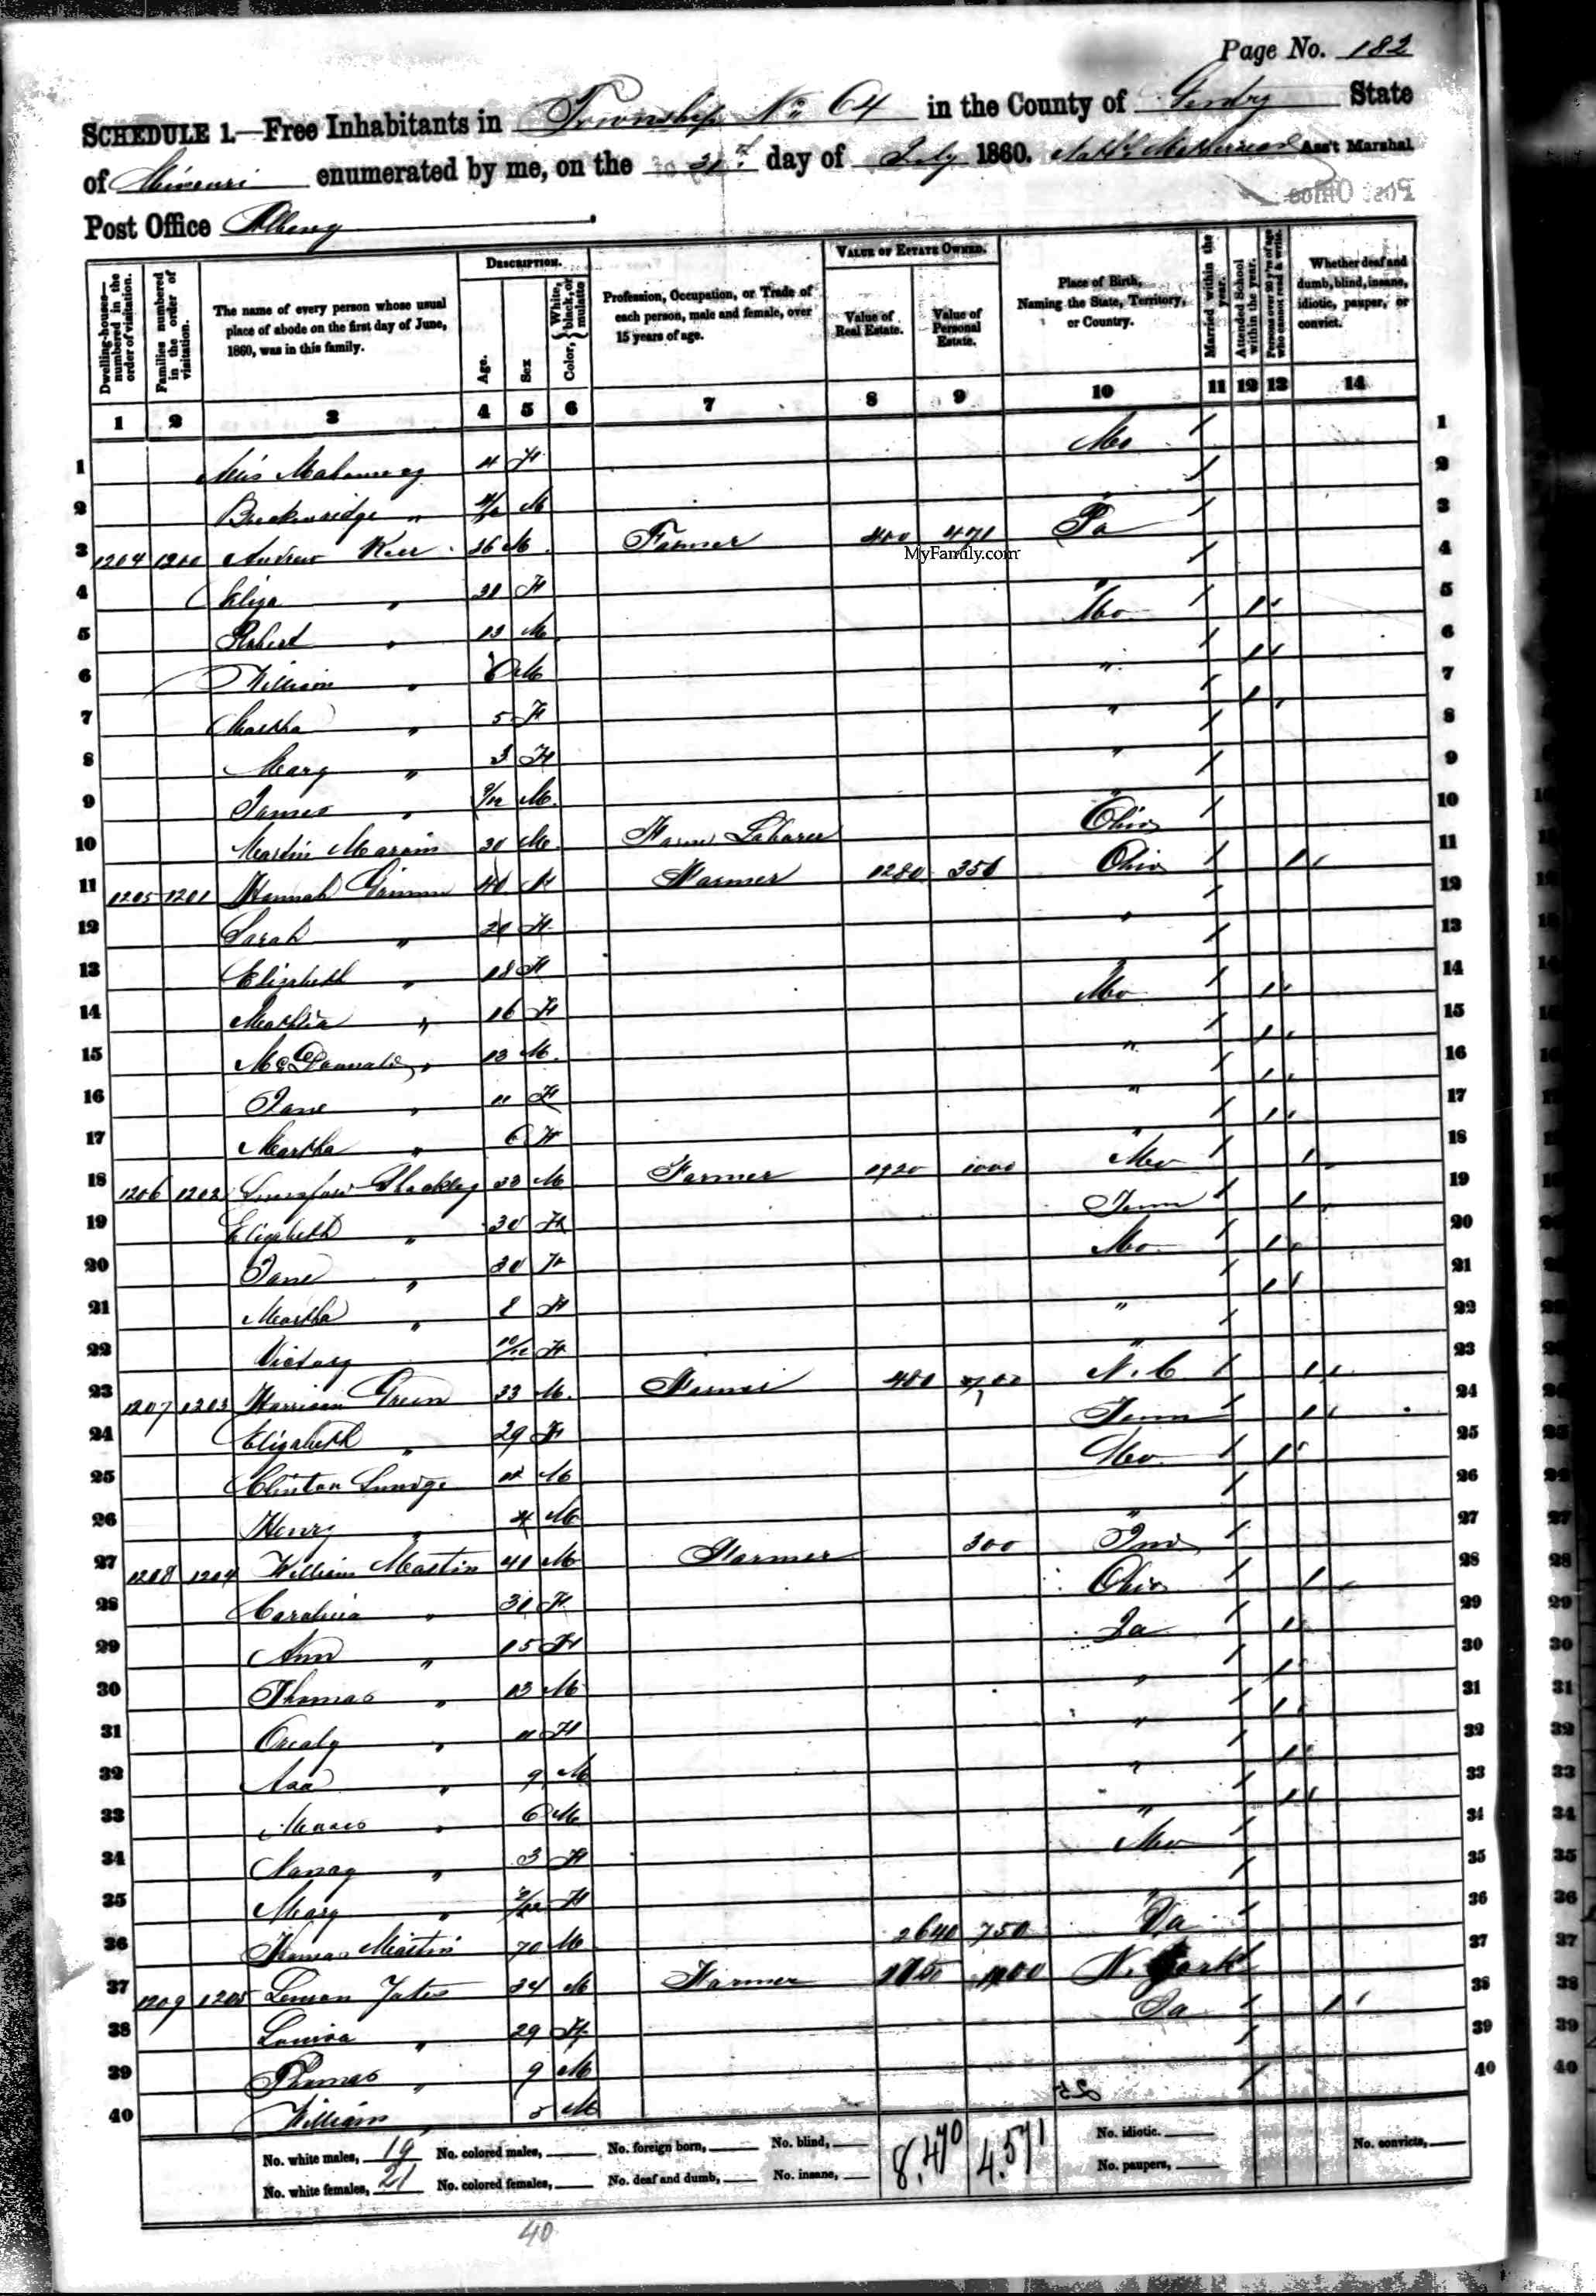 Page No. 182
SCHEDULE 1.—Free Inhabitants in Township No 64 in the County of Gentry State
of Missouri enumerated by me, on the 31st day of July 1860. Ass't Marshal
Post Office
Post Office Albany
Dwelling-houses—numbered in the order of visitation.
Families numbered in the order of visitation.
The name of every person whose usual place of abode on the first day of June, 1860, was in this family.
DESCRIPTION.
Age.
Sex
Color, { White, black, or mulatto
Profession, Occupation, or Trade of each person, male and female, over 15 years of age.
VALUE OF ESTATE OWNED.
Value of Real Estate.
Value of Personal Estate.
Place of Birth, Naming the State, Territory, or Country.
Married within the year.
Attended School within the year.
Persons over 20 y'rs of age who cannot read & write.
Whether deaf and dumb, blind, insane, idiotic, pauper, or convict.
1 2 3 4 5 6 7 8 9 10 11 12 13 14
1 Mahanney 4 F Mo / 1
2 Breckenridge " M / 2
3 1204 1200 Andrew Kerr 36 M Farmer 400 471 Pa / 3
MyFamily.com
4 Eliza " F " / 4
5 Robert " 13 M Mo / / 5
6 William " M " / / 6
7 Martha " 5 F " / / 7
8 Mary " 3 F " / 8
9 James " 9/12 M " / 9
10 Martin 20 M Farm Laborer Ohio / 10
11 1205 1201 Hannah Grimm 40 F Farmer 1280 350 Ohio / / 11
12 Sarah " 20 F " / 12
13 Elizabeth " 18 F " / 13
14 " 16 F Mo / / 14
15 McDonnald " 13 M " / / 15
16 Jane " 11 F " / / 16
17 Martha " 6 F " / / 17
18 1206 1202 Shackley 33 M Farmer 1920 1000 Mo / / 18
19 Elizabeth " 30 F Tenn / / 19
20 Jane " F Mo / / 20
21 Martha " 8 F " / / 21
22 Victory " 10/12 F " / 22
23 1207 1203 Harrison Green 33 M Farmer 480 N. C. / / 23
24 Elizabeth " 29 F Tenn / / 24
25 Clinton M Mo / / 25
26 Henry " 4 M " / 26
27 1208 1204 William Martin 41 M Farmer 300 Ind / 27
28 " F Ohio / / 28
29 Ann " 15 F Ia / / 29
30 Thomas " 13 M " / / 30
31 " 11 F " / / 31
32 Asa " 9 M " / / 32
33 " 6 M " / / 33
34 Nancy " 3 F Mo / 34
35 Mary " 2/12 F " / 35
36 Thomas Martin 70 M 2640 750 / 36
37 1209 1205 Yates 34 M Farmer N. York / 37
38 Louisa " 29 F / / 38
39 Thomas " 9 M / 39
40 William " 5 M / 40
25
No. white males, 19 No. colored males, No. foreign born, No. blind, 8,470 4,571 No. idiotic. No. convicts,
No. white females, 21 No. colored females, No. deaf and dumb, No. insane, No. paupers,
40